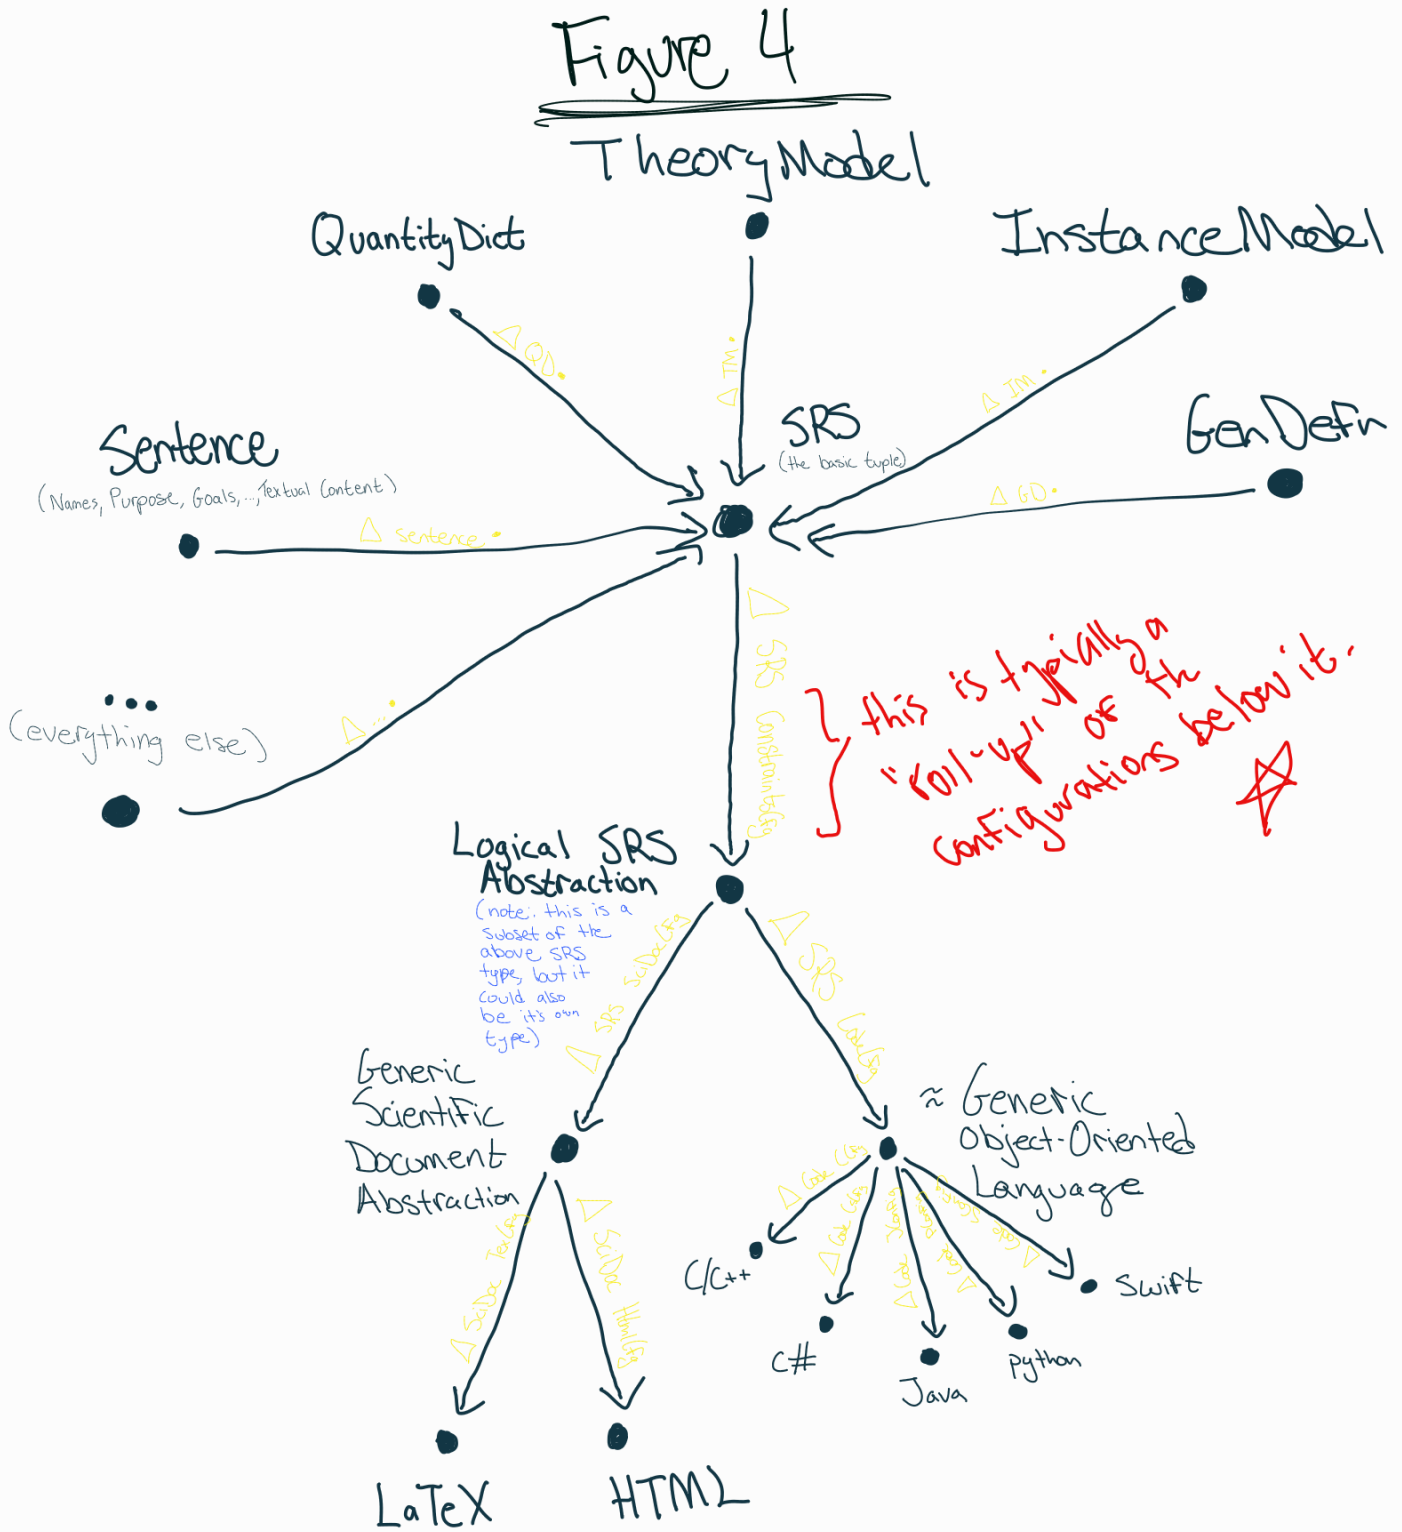 Figure 4
TheoryModel
QuantityDict
InstanceModel
Δ QD •
Δ TM •
Δ IM •
SRS
(the basic tuple)
GenDefn
Sentence
(Names, Purpose, Goals, ..., Textual Content)
Δ sentence •
Δ GD •
• • •
(everything else)
Δ ... •
Δ SRS ConstraintsCfg
} this is typically a
"roll-up" of the
configurations below it.
Logical SRS
Abstraction
(note: this is a
subset of the
above SRS
type, but it
could also
be it's own
type)
Δ SRS SciDocCfg
Δ SRS CodeCfg
Generic
Scientific
Document
Abstraction
≈ Generic
Object-Oriented
Language
Δ SciDoc TexCfg
Δ SciDoc HtmlCfg
Δ Code
Δ Code
Δ Code JConfig
Δ Code PConfig
Δ Code SConfig
C/C++
C#
Java
python
Swift
LaTeX
HTML